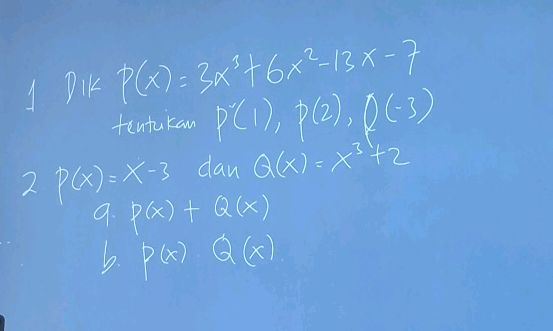 1 Dik P(x) = 3x³ + 6x² - 13x - 7
tentukan P(1), p(2), p(-3)
2 P(x) = x - 3 dan Q(x) = x³ + 2
a. p(x) + Q(x)
b. p(x) Q(x)